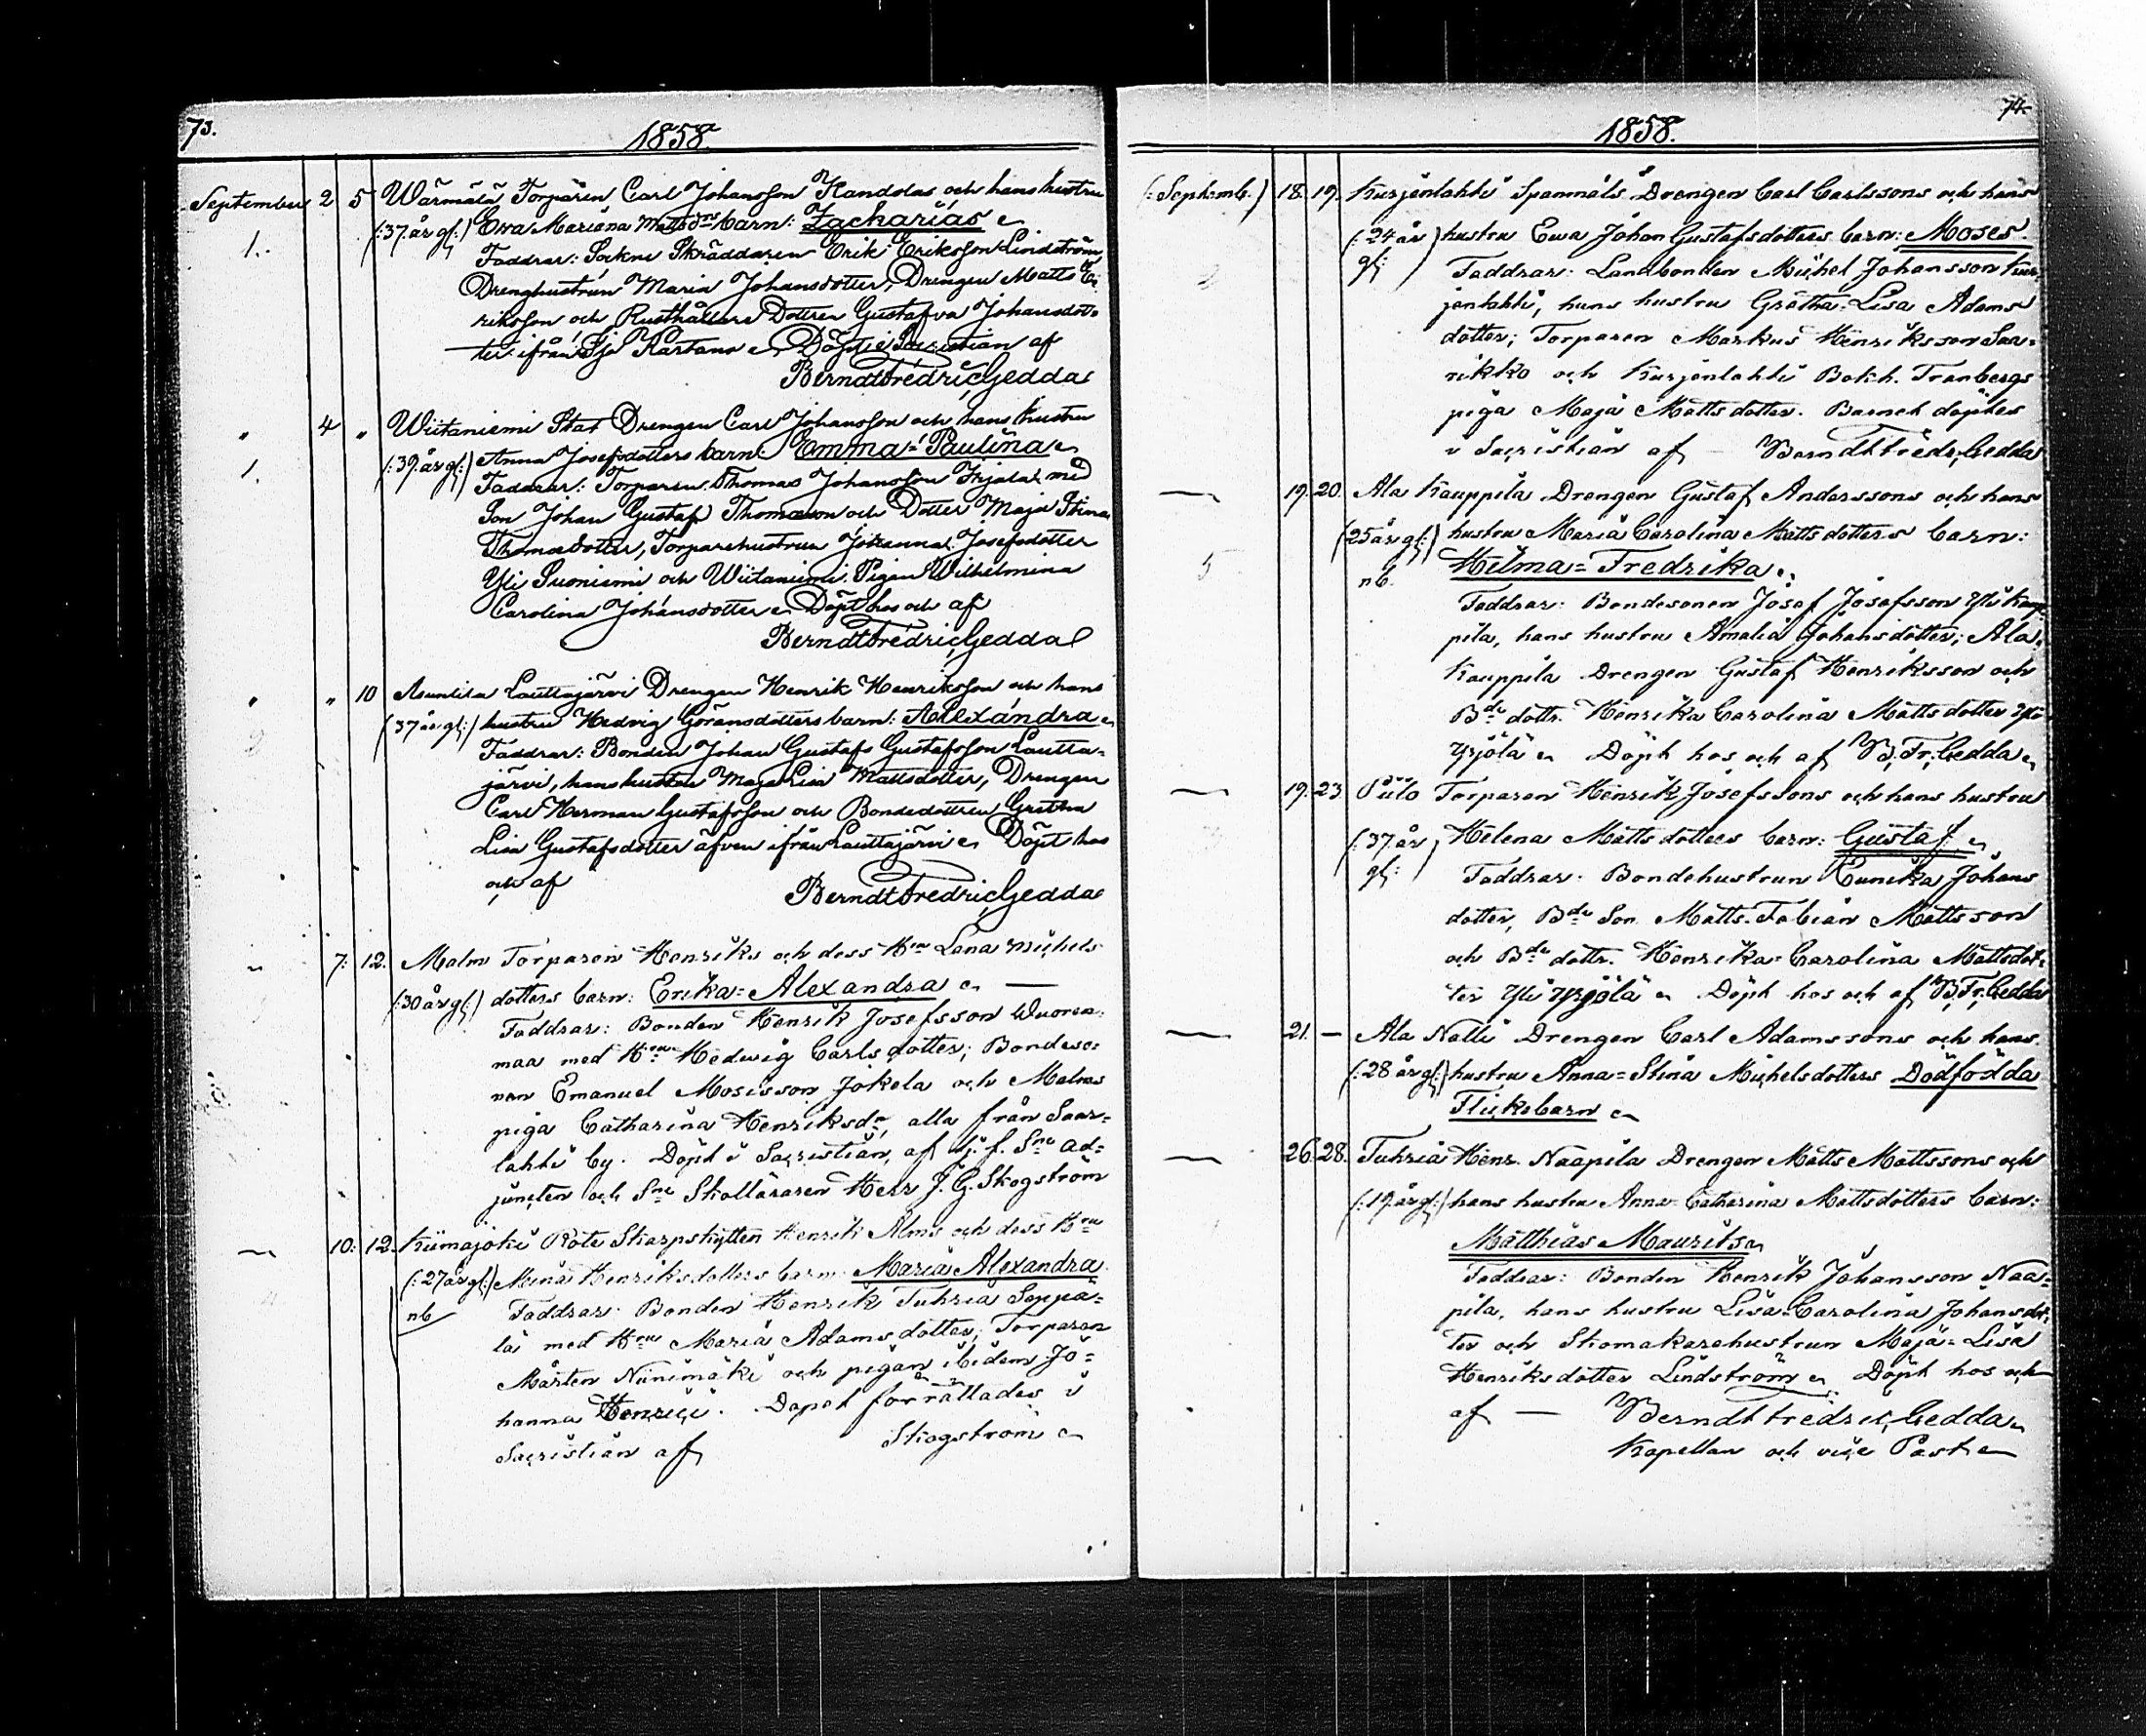 73.
1858.
September 2 5 Wärmälä Torparen Carl Johansson Handolas och hans hustru
1. (:37 år gl:) Ewa Mariana Mattsdr barn: Zacharias
Faddrar: Sockne Skräddaren Erik Eriksson Lindström,
Drenghustrun Maria Johansdotter, Drengen Matts E-
riksson och Rusthållare Dottren Gustafva Johansdot-
ter ifrån Kartano Döpt i Sacristian af
Berndt Fredric Gedda
" 4 " Wiitaniemi Stat Drengen Carl Johansson och hans hustru
1. (:39 år gl:) Anna Josefsdotters barn: Emma-Paulina
Faddrar: Torparen Thomas Johansson med
Son Johan Gustaf Thomasson och Dotter Maja Stina
Thomasdotter, Torparehustrun Johanna Josefsdotter
Yli Suoniemi och Wiitaniemi Pigan Wilhelmina
Carolina Johansdotter Döpt hos och af
Berndt Fredric Gedda
" " 10 Asuntila Lauttajärvi Drengen Henrik Henriksson och hans
2 (37 år gl:) hustru Hedvig Göransdotters barn: Alexandra
Faddrar: Bonden Johan Gustaf Gustafsson Lautta-
järvi, hans hustru Maja Lisa Mattsdotter, Drengen
Carl Herman Gustafsson och Bondedottren Gretha
Lisa Gustafsdotter äfven ifrån Lauttajärvi Döpt hos
och af Berndt Fredric Gedda
7. 12. Malm Torparen Henriks och dess Hru Lena Michels
(:30 år gl:) dotters barn: Erika-Alexandra
Faddrar: Bonden Henrik Josefsson Wuoren-
maa med Hru Hedwig Carlsdotter; Bondeso-
nen Emanuel Mosisson Jokela och Malms
piga Catharina Henriksdr, alla från Saar-
lahti by. Döpt i Sacristian, af tj. f. Sne Ad-
juncten och Sne Skolläraren Herr J. G. Skogström
10: 12. Kiimajoki Rote Skarpskytten Henrik Alms och dess Hru
(:27 år gl:) Mina Henriksdotters barn: Maria Alexandra
nb Faddrar: Bonden Henrik Tuhria Seppä-
lä med Hru Maria Adamsdotter; Torparen
Mårten Niinimäki och pigan ibidem Jo-
hanna Henrici. Dopet förrättades i
Sacristian af Skogström
74.
1858.
(:Septemb.) 18. 19. Kurjenlahti Spanmåls Drengen Carl Carlssons och hans
(:24 år hustru Ewa Johan Gustafsdotters barn: Moses.
gl:) Faddrar: Landbonden Michel Johansson Kur-
jenlahti, hans hustru Grätha-Lisa Adams
dotter; Torparen Markus Henriksson Saa-
rikko och Kurjenlahti Bokh. Tranbergs
piga Maja Mattsdotter. Barnet döptes
i Sacristian af Berndt Fredr. Gedda
19. 20. Ala Kauppila Drengen Gustaf Anderssons och hans
(25 år gl:) hustru Maria Carolina Mattsdotters barn:
5 nb. Hilma-Fredrika.
Faddrar: Bondesonen Josef Josefsson Yli Kaup-
pila, hans hustru Amalia Johansdotter; Ala
Kauppila Drengen Gustaf Henriksson och
Bde dottr. Henrika Carolina Mattsdotter Yli
Yrjölä Döpt hos och af B. Fr. Gedda
19. 23. Piilo Torparen Henrik Josefssons och hans hustru
(:37 år Helena Mattsdotters barn: Gustaf
gl:) Faddrar: Bondehustrun Eunika Johans
dotter, Bde Son Matts Fabian Mattsson
och Bde dottr. Henrika Carolina Mattsdot-
ter Yli Yrjölä Döpt hos och af B. Fr. Gedda
21. — Ala Nalli Drengen Carl Adamssons och hans
(:28 år gl:) hustru Anna-Stina Michelsdotters Dödfödda
Flickebarn
26. 28. Tuhria Henr. Naapila Drengen Matts Mattssons och
(:19 år gl:) hans hustru Anna Catharina Mattsdotters barn:
Matthias Maurits
Faddrar: Bonden Henrik Johansson Naa-
pila, hans hustru Lisa-Carolina Johansdot-
ter och Skomakarehustrun Maja-Lisa
Henriksdotter Lindström Döpt hos och
af — Berndt Fredric Gedda
Kapellan och vice Past